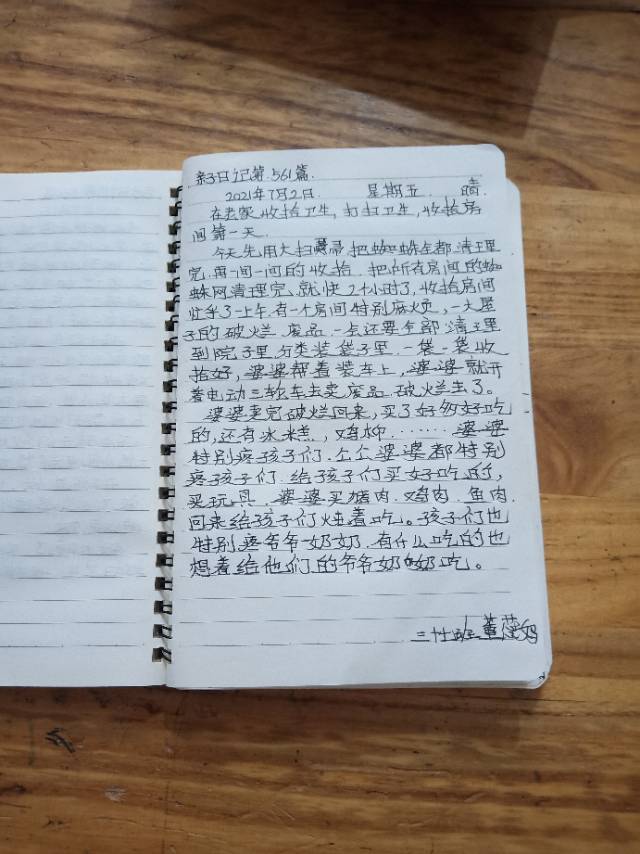 亲子日记第561篇.
2021年7月2日. 星期五. 晴.
在老家收拾卫生,打扫卫生,收拾房
间第一天.
今天先用大扫帚,把蜘蛛全都清理
完,再一间一间的收拾.把所有房间的蜘
蛛网清理完,就快2个小时了,收拾房间
忙乎了一上午.有一个房间特别麻烦,一大屋
子的破烂.废品一点还要全部清理
到院子里.分类装袋子里.一袋一袋收
拾好,婆婆帮着装车上,婆婆就开
着电动三轮车去卖.废品.破烂去了。
婆婆卖完破烂回来,买了好多好吃
的,还有冰糕,鸡柳.……婆婆
特别疼孩子们.个个婆婆都特别
疼孩子们.给孩子们买好吃的,
买玩具.婆婆买猪肉.鸡肉.鱼肉.
回来给孩子们炖着吃。孩子们也
特别疼爷爷奶奶.有什么吃的也
想着给他们的爷爷奶奶吃。
班董 妈